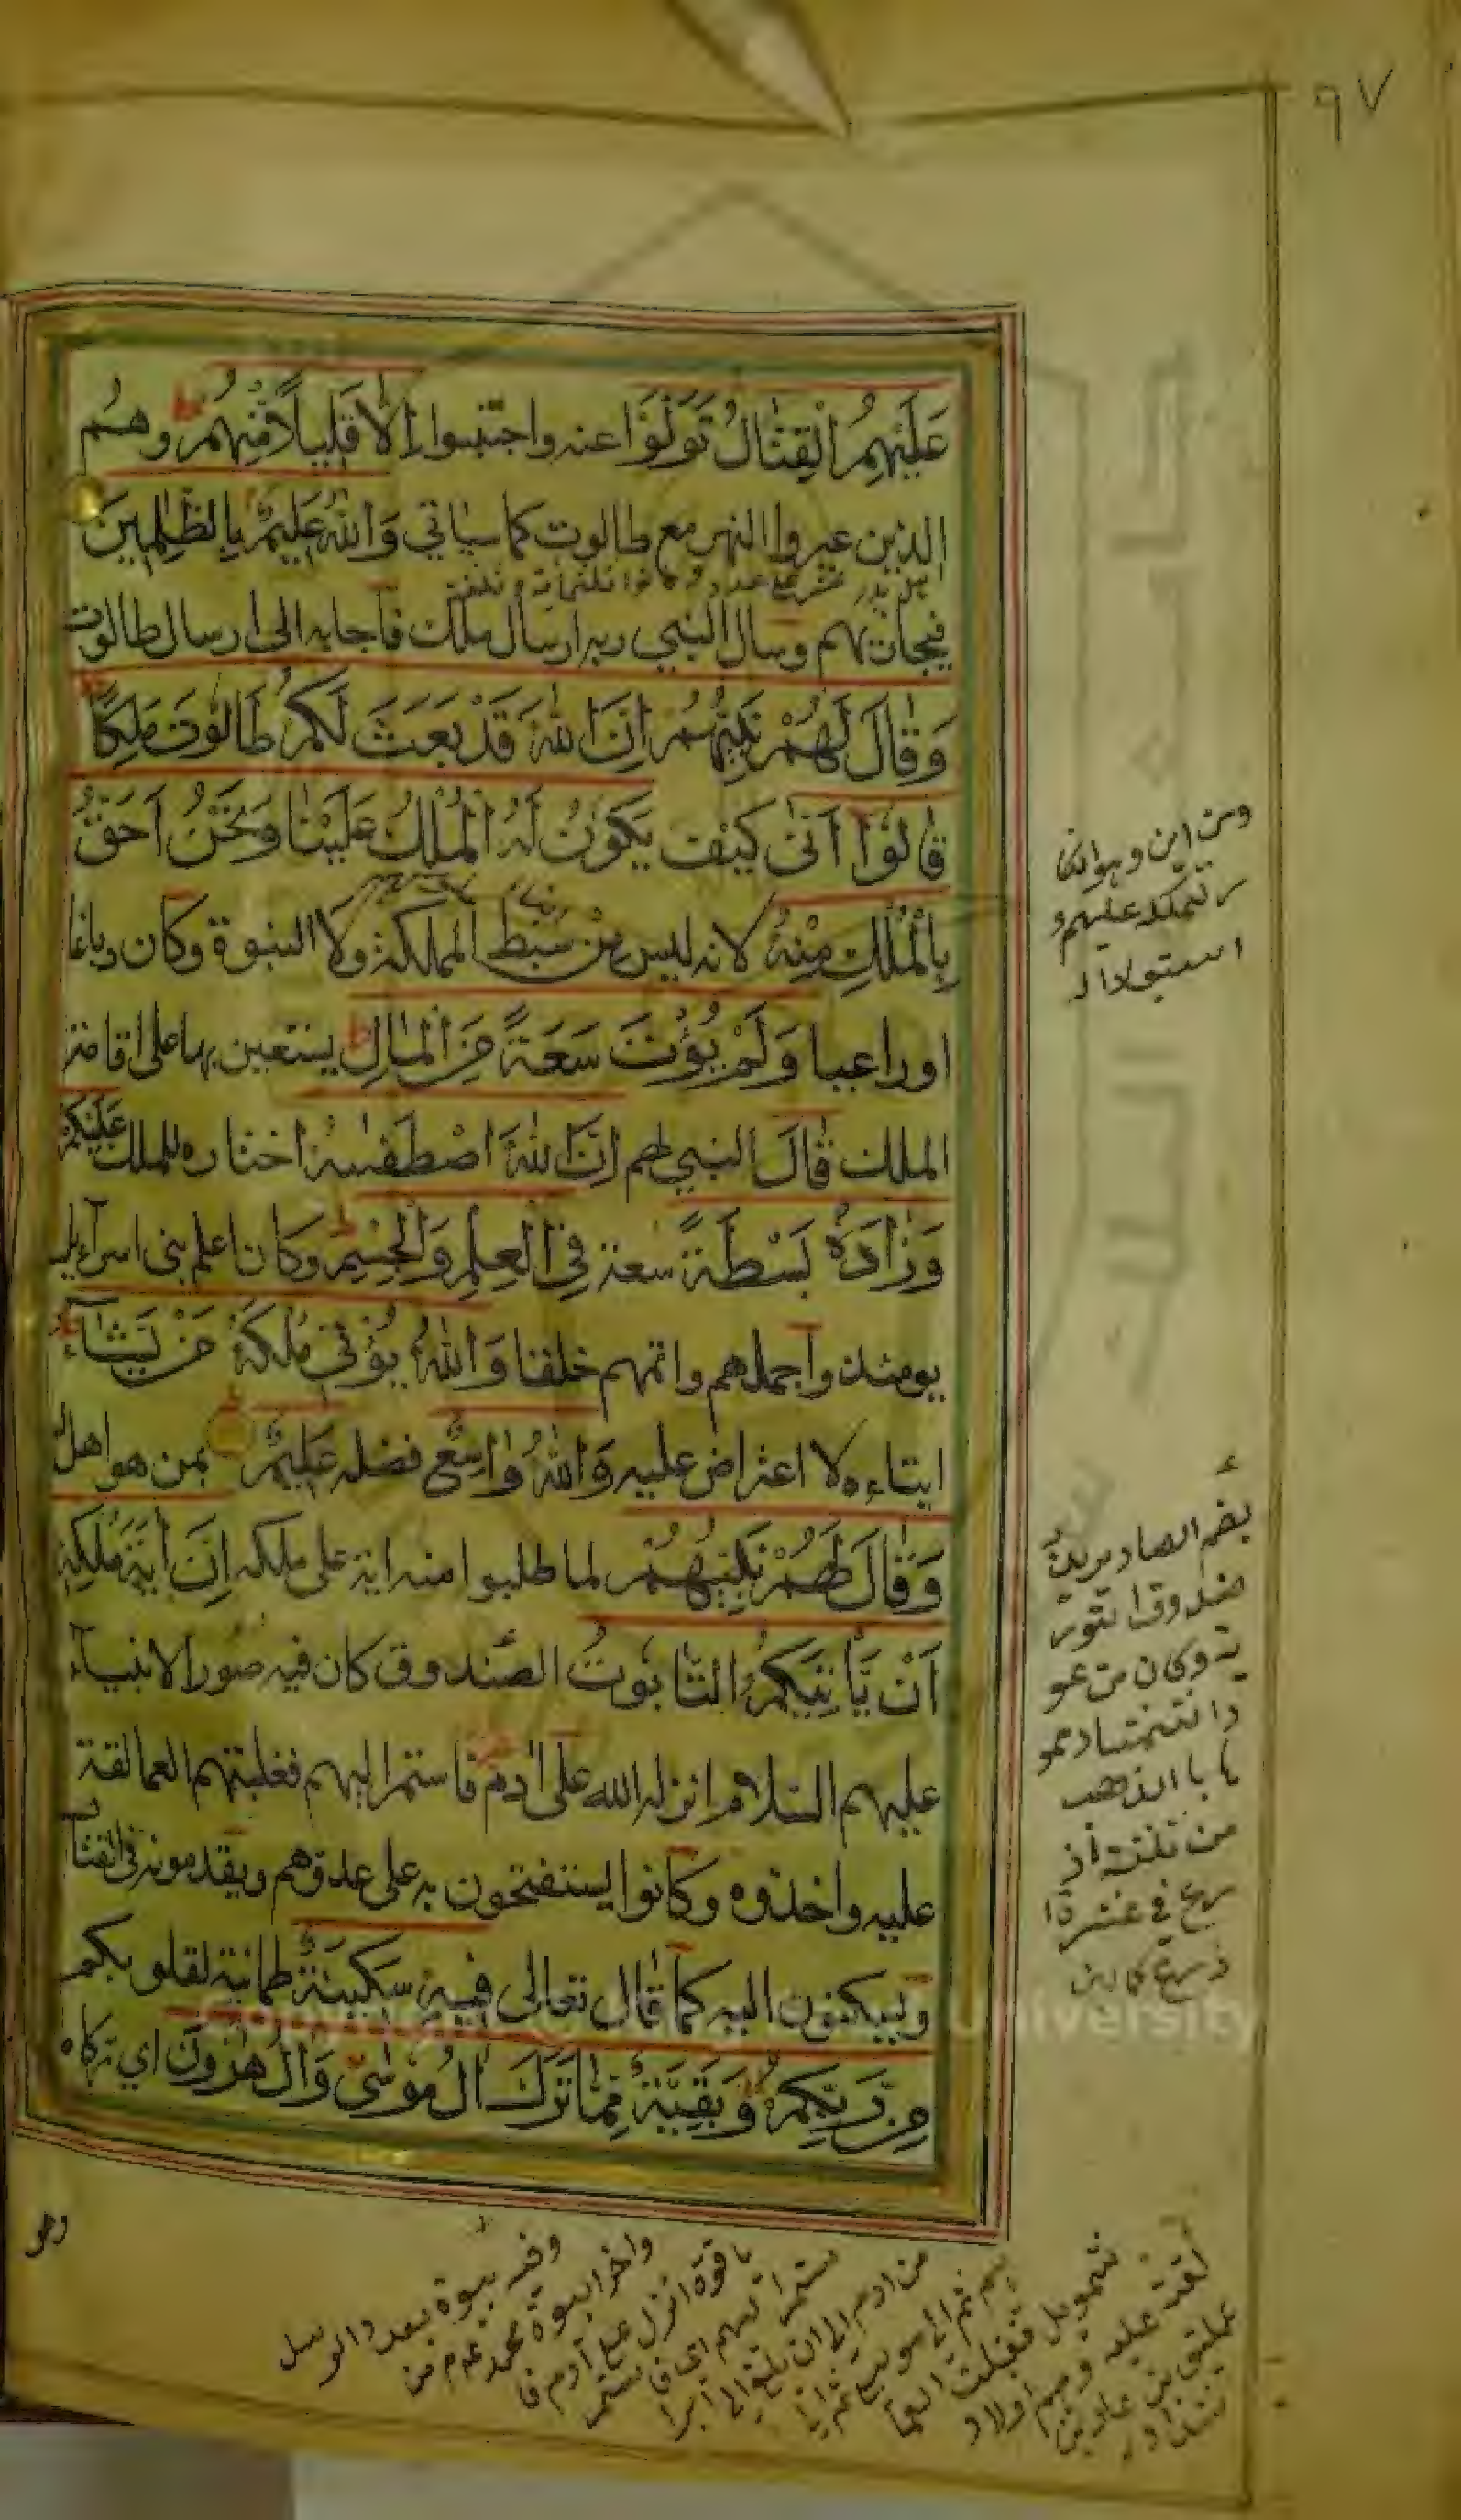 ٩٧
عَلَيْهِمُ الْقِتَالُ تَوَلَّوْا عنه واجتنبوا إِلَّا قَلِيلًا مِّنْهُمْ وهم
الذين عبروا النهر مع طالوت كما سياتي وَاللّٰهُ عَلِيمٌ بِالظّٰلِمِينَ
فيجازيهم وسال النبي ربه ارسال ملك فاجابه الى ارسال طالوت
وَقَالَ لَهُمْ نَبِيُّهُمْ اِنَّ اللّٰهَ قَدْ بَعَثَ لَكُمْ طَالُوتَ مَلِكًا
قَالُوٓا اَنّٰى كيف يَكُونُ لَهُ الْمُلْكُ عَلَيْنَا وَنَحْنُ اَحَقُّ
بِالْمُلْكِ مِنْهُ لانه ليس من سبط المملكة ولا النبوة وكان دباغا
او راعيا وَلَمْ يُؤْتَ سَعَةً مِنَ الْمَالِ يستعين بها على اقامة
الملك قَالَ النبي لهم اِنَّ اللّٰهَ اصْطَفٰىهُ اختاره للملك عَلَيْكُمْ
وَزَادَهُ بَسْطَةً سعة فِي الْعِلْمِ وَالْجِسْمِ وكان اعلم بني اسرآءيل
يومئذ واجملهم واتمهم خلقا وَاللّٰهُ يُؤْتِي مُلْكَهُ مَنْ يَشَآءُ
ايتاءه لا اعتراض عليه وَاللّٰهُ وَاسِعٌ فضله عَلِيمٌ بمن هو اهل
وَقَالَ لَهُمْ نَبِيُّهُمْ لما طلبوا منه اية على ملكه اِنَّ اٰيَةَ مُلْكِهِ
اَنْ يَاْتِيَكُمُ التَّابُوتُ الصندوق كان فيه صور الانبيآء
عليهم السلام انزله الله على اٰدم فاستمر اليهم فغلبتهم العمالقة
عليه واخذوه وكانوا يستفتحون به على عدوهم ويقدمونه في القتال
ويسكنون اليه كما قال تعالى فِيهِ سَكِينَةٌ طمانينة لقلوبكم
مِنْ رَبِّكُمْ وَبَقِيَّةٌ مِمَّا تَرَكَ اٰلُ مُوسٰى وَاٰلُ هٰرُونَ اي تركاه
وهو
ومن اين
تملكه عليهم و
بضم الصاد يريد
من ثلثة اذ
رع في عشرة ا
ياقوة انزل على آدم فا
من ادم الى ان بلغ الى ابرا
شمويل فغلبت العما
لقة عليه وهم اولاد
عمليق بن عاد بن
University